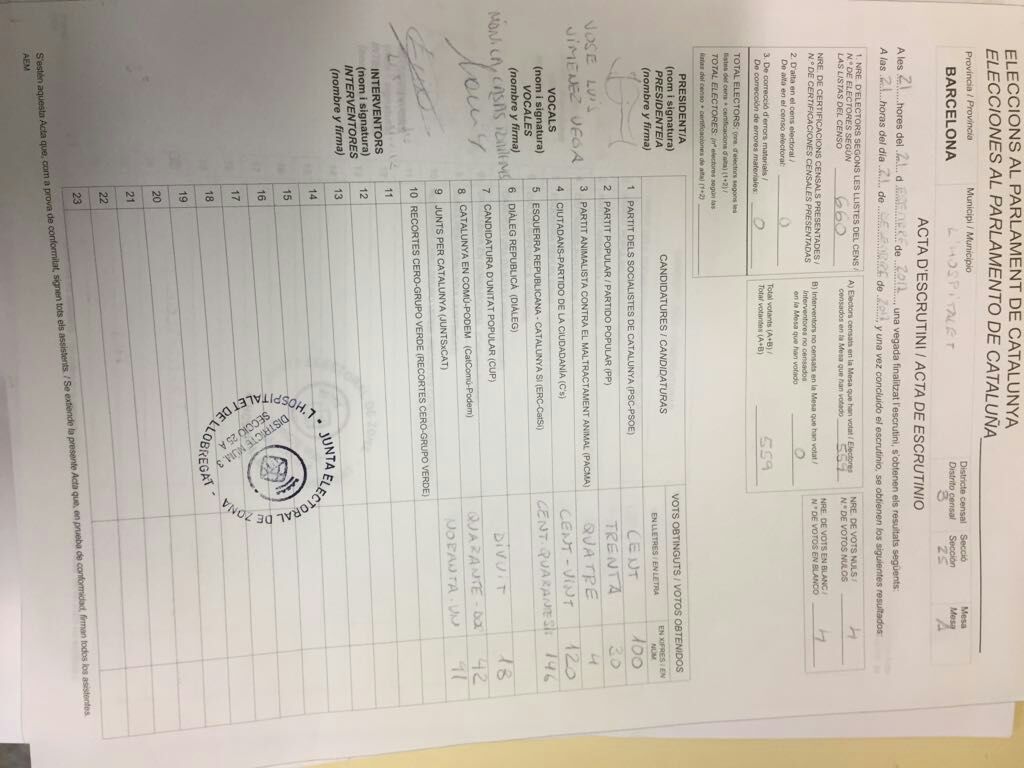 ELECCIONS AL PARLAMENT DE CATALUNYA
ELECCIONES AL PARLAMENTO DE CATALUÑA
Província / Provincia
BARCELONA
Municipi / Municipio
L'HOSPITALET
Districte censal
Distrito censal
3
Secció
Sección
25
Mesa
Mesa
A
ACTA D'ESCRUTINI / ACTA DE ESCRUTINIO
A les 21 hores del 21 d de 2017, una vegada finalitzat l'escrutini, s'obtenen els resultats següents:
A las 21 horas del día 21 de de 2017 y una vez concluido el escrutinio, se obtienen los siguientes resultados:
1. NRE. D'ELECTORS SEGONS LES LLISTES DEL CENS /
N.º DE ELECTORES SEGÚN
LAS LISTAS DEL CENSO 660
NRE. DE CERTIFICACIONS CENSALS PRESENTADES /
N.º DE CERTIFICACIONES CENSALES PRESENTADAS
2. D'alta en el cens electoral /
De alta en el censo electoral: 0
3. De correcció d'errors materials /
De corrección de errores materiales: 0
TOTAL ELECTORS: (nre. d'electors segons les
llistes del cens + certificacions d'alta) (1+2) /
TOTAL ELECTORES: (nº electores según las
listas del censo + certificaciones de alta) (1+2)
A) Electors censats en la Mesa que han votat / Electores
censados en la Mesa que han votado 559
B) Interventors no censats en la Mesa que han votat /
Interventores no censados
en la Mesa que han votado 0
Total votants (A+B) /
Total votantes (A+B) 559
NRE. DE VOTS NULS /
N.º DE VOTOS NULOS 4
NRE. DE VOTS EN BLANC /
N.º DE VOTOS EN BLANCO 4
CANDIDATURES / CANDIDATURAS
VOTS OBTINGUTS / VOTOS OBTENIDOS
EN LLETRES / EN LETRA
EN XIFRES / EN NÚM.
1 PARTIT DELS SOCIALISTES DE CATALUNYA (PSC-PSOE) CENT 100
2 PARTIT POPULAR / PARTIDO POPULAR (PP) TRENTA 30
3 PARTIT ANIMALISTA CONTRA EL MALTRACTAMENT ANIMAL (PACMA) QUATRE 4
4 CIUTADANS-PARTIDO DE LA CIUDADANÍA (C's) CENT-VINT 120
5 ESQUERRA REPUBLICANA - CATALUNYA SÍ (ERC-CatSí) 146
6 DIÀLEG REPUBLICÀ (DIÀLEG)
7 CANDIDATURA D'UNITAT POPULAR (CUP) DIVUIT 18
8 CATALUNYA EN COMÚ-PODEM (CatComú-Podem) QUARANTE-DOS 42
9 JUNTS PER CATALUNYA (JUNTSxCAT) NORANTA-UN 91
10 RECORTES CERO-GRUPO VERDE (RECORTES CERO-GRUPO VERDE)
11
12
13
14
15
16
17
18
19
20
21
22
23
JUNTA ELECTORAL DE ZONA
L'HOSPITALET DE LLOBREGAT
DISTRICTE NÚM. 3
SECCIÓ 25 A
PRESIDENT/A
(nom i signatura)
PRESIDENTE/A
(nombre y firma)
JOSE LUIS
JIMENEZ VEGA
VOCALS
(nom i signatura)
VOCALES
(nombre y firma)
MONICA
INTERVENTORS
(nom i signatura)
INTERVENTORES
(nombre y firma)
S'estén aquesta Acta que, com a prova de conformitat, signen tots els assistents. / Se extiende la presente Acta que, en prueba de conformidad, firman todos los asistentes.
AEM